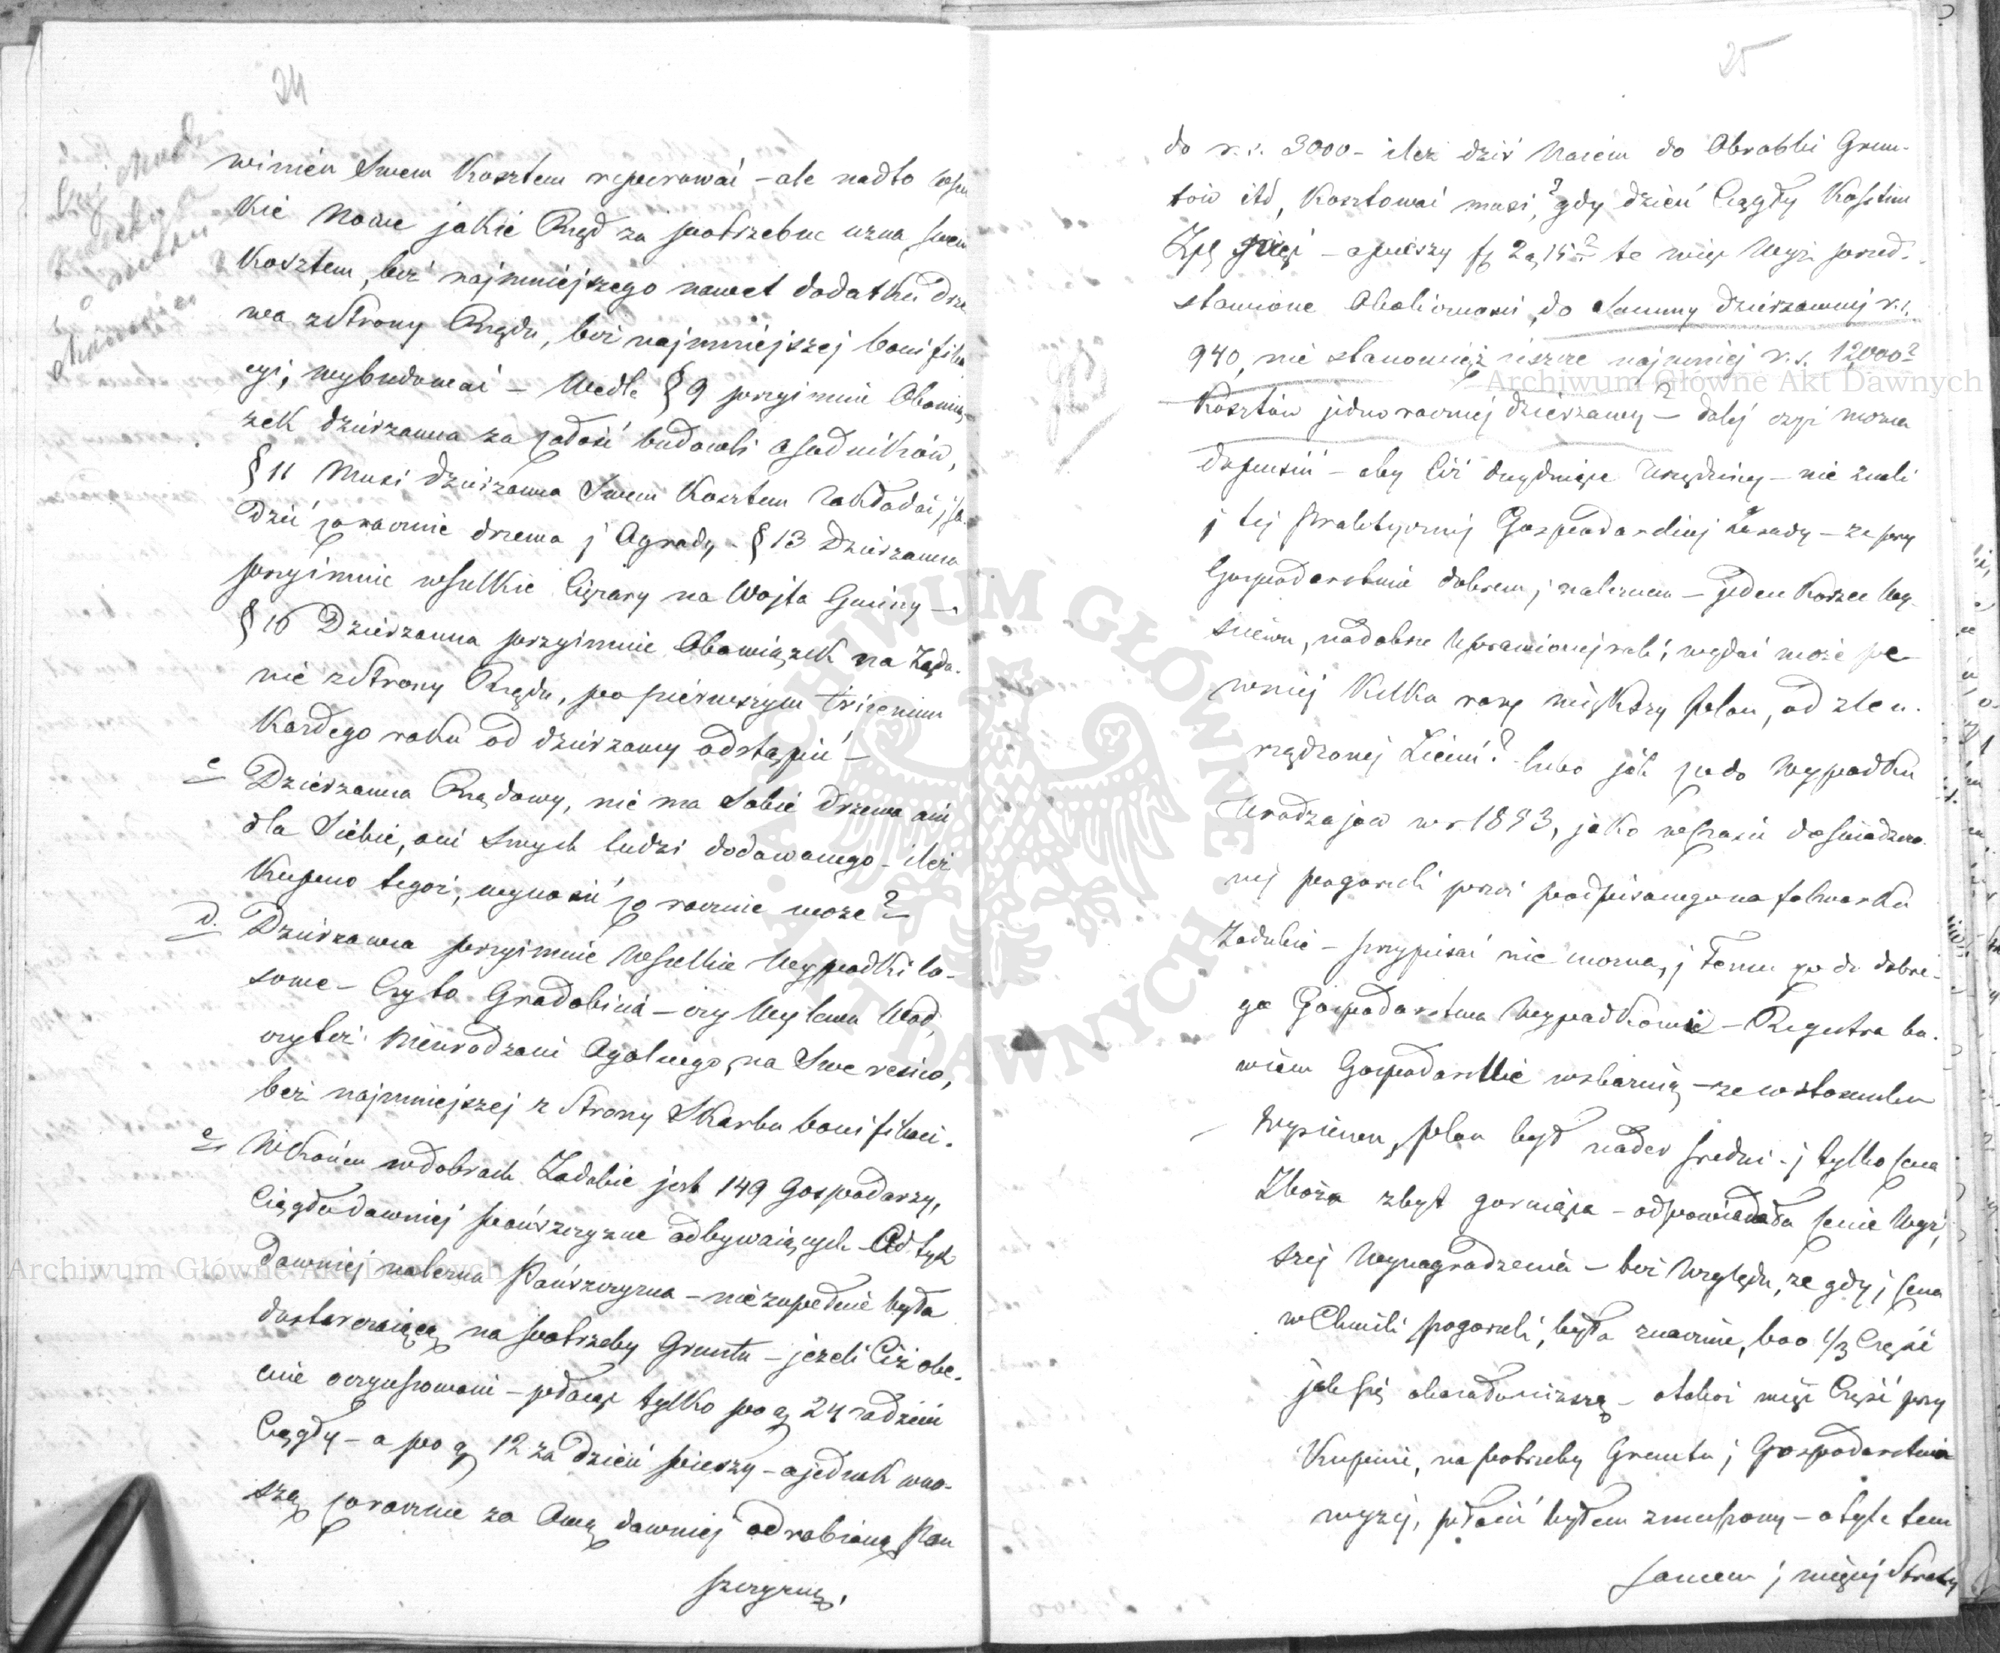 24
winien Swem Kosztem reperować – ale nadto wszel
kie Nowe jakie Rząd za potrzebne uzna, swem
Kosztem, bez najmniejszego nawet dodatku drze
wa z Strony Rządu, bez najmniejszej bonifika
cyi, wybudować – Wedle § 9 przyimuie Obowią-
zek dzierzawca za całość budowli osadników,
§ 11 Musi Dzierzawca Swem Kosztem Zakładać, sa
dzić corocznie drzewa j Ogrody – § 13 Dzierzawca
przyimuie wszelkie Ciężary na Wójta Gminy –
§ 16 Dzierzawca przyimuie Obowiązek na Żąda-
nie z Strony Rządu, po pierwszym trzicenium
Każdego roku od dzierzawy odstąpić –
c Dzierzawca Rządowy, nie ma Sobie Drzewa ani
dla Siebie, ani Swych ludzi dodawanego – ileż
Kupno tegoż, wynosić corocznie może?
d. Dzierzawca przyimuie Wszelkie Wypadki lo-
sowe – Czyto Gradobicia – czy Wylewu Wód,
czyteż Nieurodzaiu Ogólnego, na Swe resico,
bez najmniejszej z Strony Skarbu bonifikaci.
e W Końcu w dobrach Zadubie jest 149 Gospodarzy,
Ciągłą dawniej pańszczyznę odbywaiących – Od tych
dawniej należna Pańszczyzna – nie zupełnie była
dostarczaiącą na potrzeby Gruntu – jeżeli Ciż obe-
cnie oczynszowani – płacąc tylko po g 24 za dzień
Ciągły – a po g 12 za Dzień pieszy – a jednak wno-
szą corocznie za Ową dawniej odrabianą Pan
szczyznę,
25
do r. s. 3000 – ileż dziś Naiem do Obrobki Grun-
tów itd, Kosztować musi, ? gdy dzień Ciągły Kosztuie
Złp pięć – a pieszy f 2 g 15? te więc Wyż przed-
stawione Okoliczności, do Summy dzierzawnej r. s.
940, nie stanowiąż ieszcze najmniej r. s. 12,000?
Kosztów jednorocznej dzierzawy? – dalej czyż można
dopuścić – aby Ciż Urzędnicy – nie znali
j tej praktycznej Gospodarskiej Zasady – że przy
Gospodarstwie dobrem j należnem – jeden Korzec Wy-
siewu, na dobrze Uprawionej roli, wydać może pe-
wniej Kilka razy większy plon, od źle u-
rządzonej Ziemi? – lubo jak co do Wypadku
Urodzajów w r 1853, jako w czasie doświadczo-
nej pogorzeli przez podpisanego na folwarku
Zadubie – przypisać nie można, j Temu co do dobre-
go Gospodarstwa Wypadkowi – Regestra bo-
wiem Gospodarskie wskazuią – że w stosunku
Wysiewu, plon był nader średni – j tylko cena
Zboża zbyt goruiąca – odpowiadała cenie Wyż-
szej Wynagrodzenia – bez Względu, że gdy j cena
w Chwili pogorzeli, była znacznie, boo 1/3 Część
jak się okazało niższą – otokoż więc Część przy
Kupnie, na potrzeby Gruntu j Gospodarstwa
wyżej, płacić byłem zmuszony – o tyle tem
samem j więcej Straty
Archiwum Główne Akt Dawnych
Archiwum Główne Akt Dawnych
ARCHIWUM GŁÓWNE AKT DAWNYCH